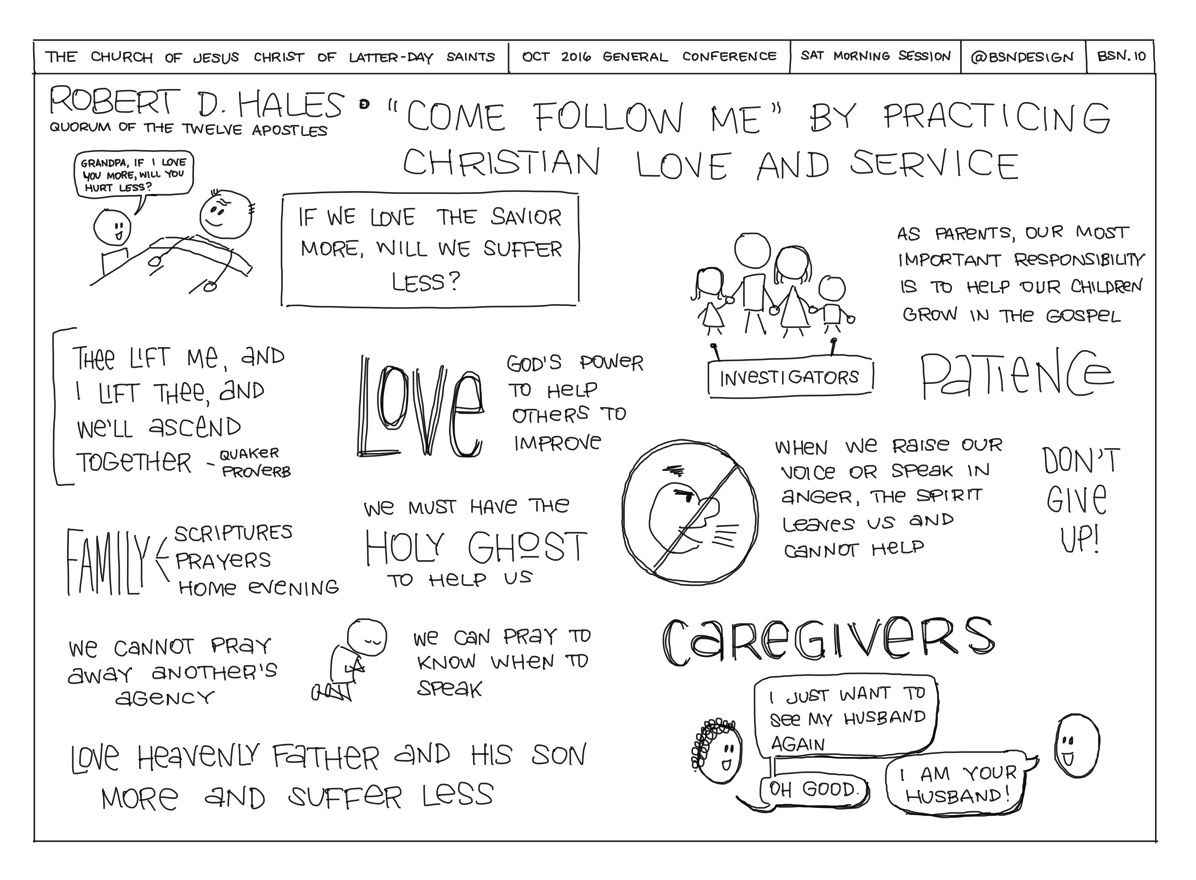 THE CHURCH OF JESUS CHRIST OF LATTER-DAY SAINTS
OCT 2016 GENERAL CONFERENCE
SAT MORNING SESSION
@BSNDESIGN
BSN.10
ROBERT D. HALES
QUORUM OF THE TWELVE APOSTLES
"COME FOLLOW ME" BY PRACTICING
CHRISTIAN LOVE AND SERVICE
GRANDPA, IF I LOVE
YOU MORE, WILL YOU
HURT LESS?
IF WE LOVE THE SAVIOR
MORE, WILL WE SUFFER
LESS?
AS PARENTS, OUR MOST
IMPORTANT RESPONSIBILITY
IS TO HELP OUR CHILDREN
GROW IN THE GOSPEL
INVESTIGATORS
PATIENCE
THEE LIFT ME, AND
I LIFT THEE, AND
WE'LL ASCEND
TOGETHER - QUAKER
PROVERB
LOVE
GOD'S POWER
TO HELP
OTHERS TO
IMPROVE
WHEN WE RAISE OUR
VOICE OR SPEAK IN
ANGER, THE SPIRIT
LEAVES US AND
CANNOT HELP
DON'T
GIVE
UP!
FAMILY
SCRIPTURES
PRAYERS
HOME EVENING
WE MUST HAVE THE
HOLY GHOST
TO HELP US
WE CANNOT PRAY
AWAY ANOTHER'S
AGENCY
WE CAN PRAY TO
KNOW WHEN TO
SPEAK
CAREGIVERS
I JUST WANT TO
SEE MY HUSBAND
AGAIN
I AM YOUR
HUSBAND!
OH GOOD.
LOVE HEAVENLY FATHER AND HIS SON
MORE AND SUFFER LESS